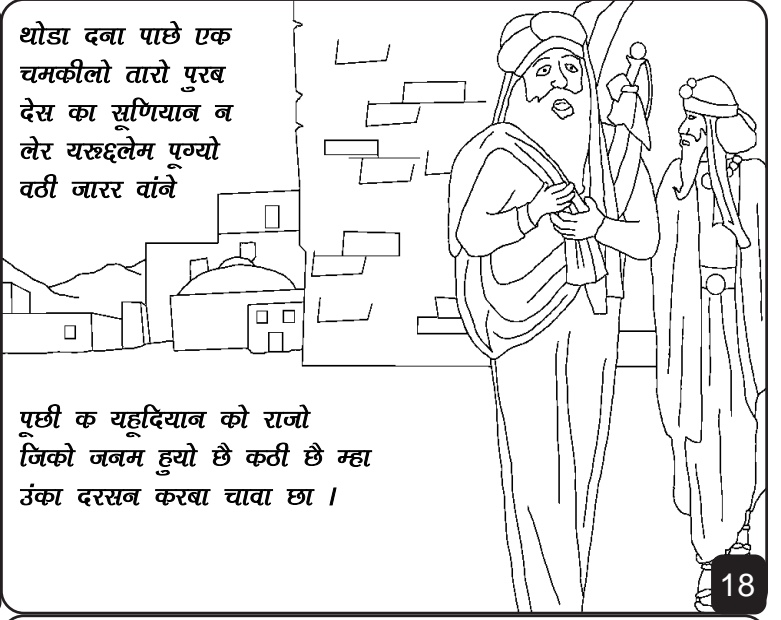 थोडा दना पाछे एक
चमकीलो तारो पुरब
देस का सूणियान न
लेर यरूद्दलेम पूग्यो
वठी जारर वांने
पूछी क यहूदियान को राजो
जिको जनम हुयो छै कठी छै म्हा
उंका दरसन करबा चावा छा ।
18